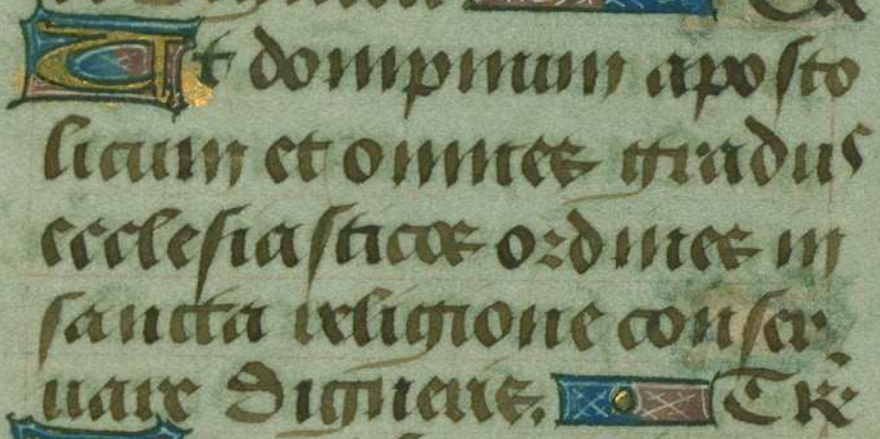 Ut dompnum aposto
licum et omnes gradus
ecclesiasticos ordines in
sancta religione conser
uare Digneris. Te R